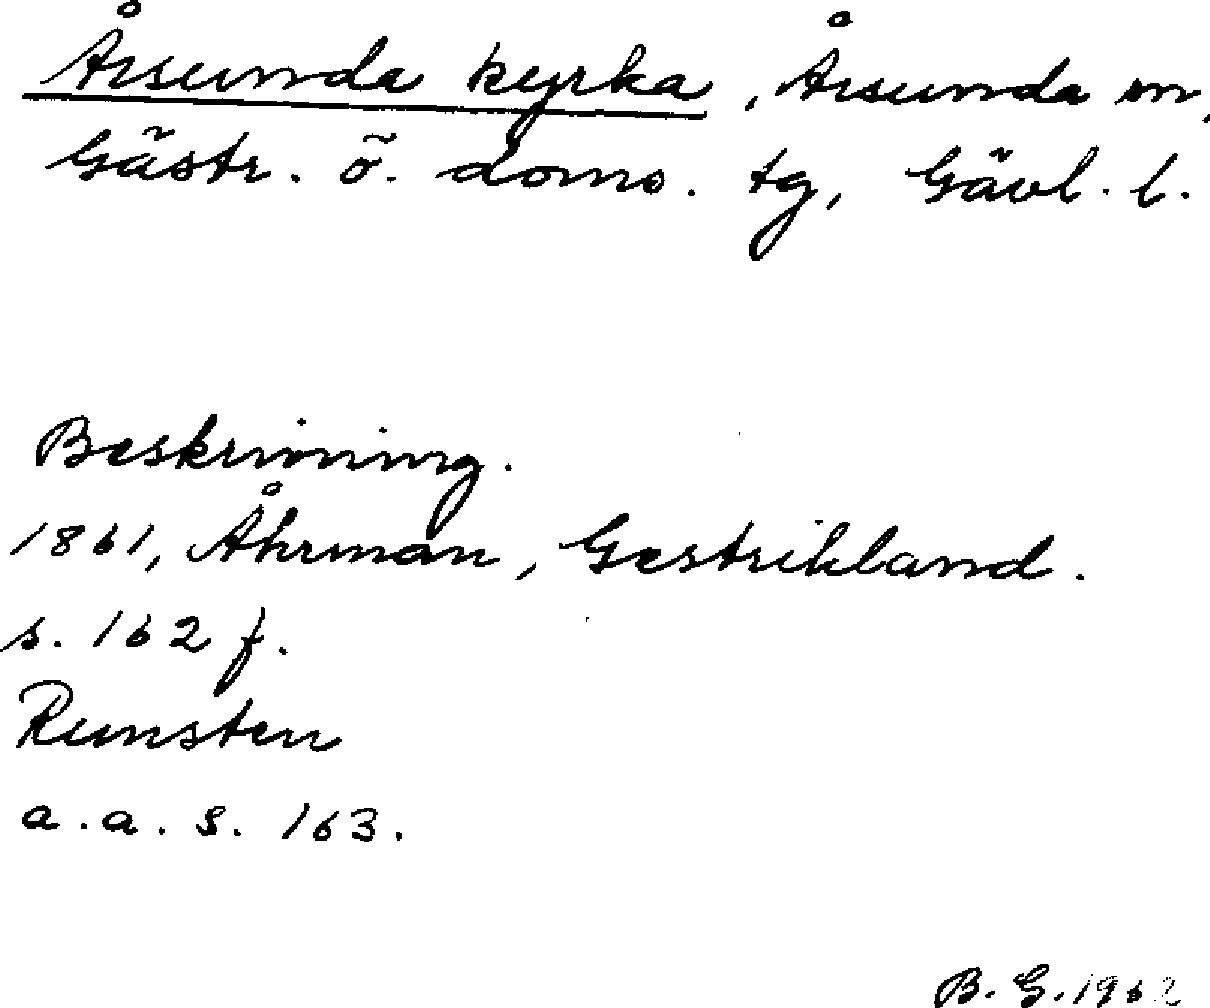 Årsunda kyrka, Årsunda sn,
Gästr. ö. doms. tg, Gävl. l.
Beskrivning.
1861, Åhrman, Gestrikland.
s. 162 f.
Runsten
a.a. s. 163.
B. G. 1962